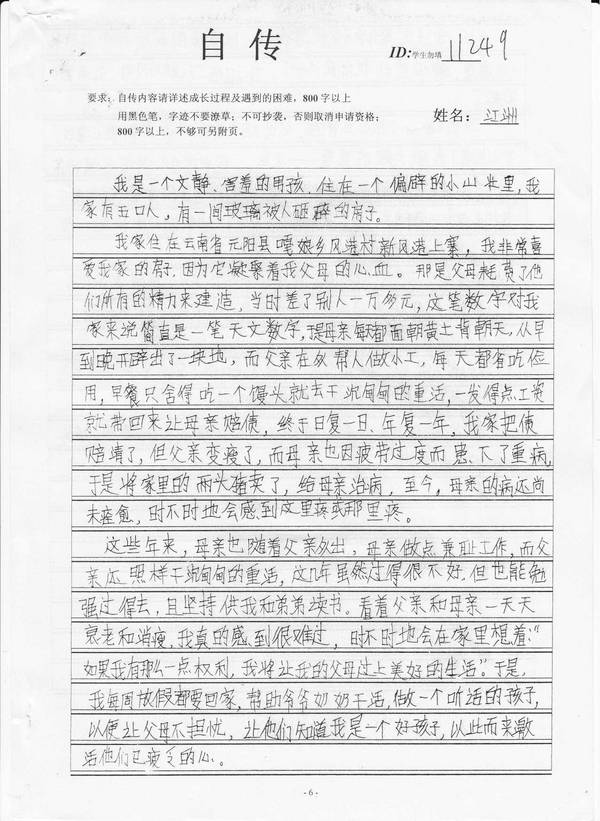 自传
ID:学生勿填 11249
要求：自传内容请详述成长过程及遇到的困难，800字以上
用黑色笔，字迹不要潦草；不可抄袭，否则取消申请资格；
800字以上，不够可另附页。
姓名：江洲
我是一个文静、害羞的男孩，住在一个偏僻的小山庄里，我
家有五口人，有一间玻璃被人砸碎的房子。
我家住在云南省元阳县嘎娘乡风港村新风港上寨，我非常喜
爱我家的房子，因为它凝聚着我父母的心血。那是父母耗费了他
们所有的精力来建造，当时差了别人一万多元，这笔数字对我
家来说简直是一笔天文数字，于是母亲每天都面朝黄土背朝天，从早
到晚开辟出了一块地，而父亲在外帮人做小工，每天都省吃俭
用，早餐只舍得吃一个馒头就去干沉甸甸的重活，一发得点工资
就带回来让母亲赔债，终于日复一日、年复一年，我家把债
赔清了，但父亲变瘦了，而母亲也因疲劳过度而患下了重病，
于是将家里的两头猪卖了，给母亲治病，至今，母亲的病还尚
未痊愈，时不时地会感到这里疼或那里疼。
这些年来，母亲也随着父亲外出，母亲做点兼职工作，而父
亲还照样干沉甸甸的重活，这几年虽然过得很不好，但也能勉
强过得去，且坚持供我和弟弟读书。看着父亲和母亲一天天
衰老和消瘦，我真的感到很难过，时不时地会在家里想着：“
如果我有那么一点权利，我将让我的父母过上美好的生活。”于是，
我每周放假都要回家，帮助爷爷奶奶干活，做一个听话的孩子，
以便让父母不担忧，让他们知道我是一个好孩子，以此而来激
活他们已疲乏的心。
- 6 -